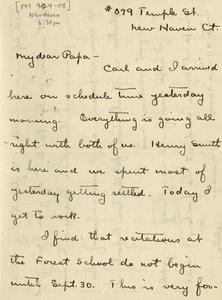 [PM 9-24-05]
New Haven
3:30 pm
#379 Temple St.
New Haven Ct.
My dear Papa-
Carl and I arrived
here on schedule time yesterday
morning. Everything is going all
right with both of us. Henry Smith
is here and we spent most of
yesterday getting settled. Today I
get to work.
I find that recitations at
the Forest School do not begin
until Sept. 30. This is very foo-